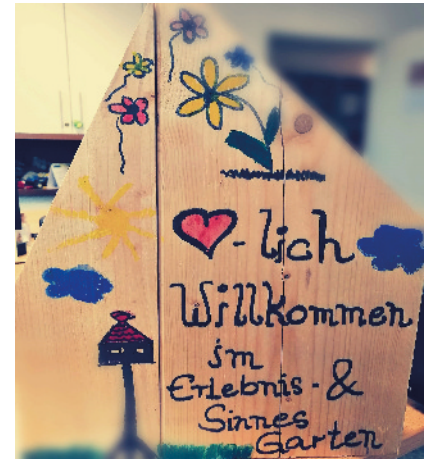 ♥-lich
Willkommen
im
Erlebnis-&
Sinnes
Garten